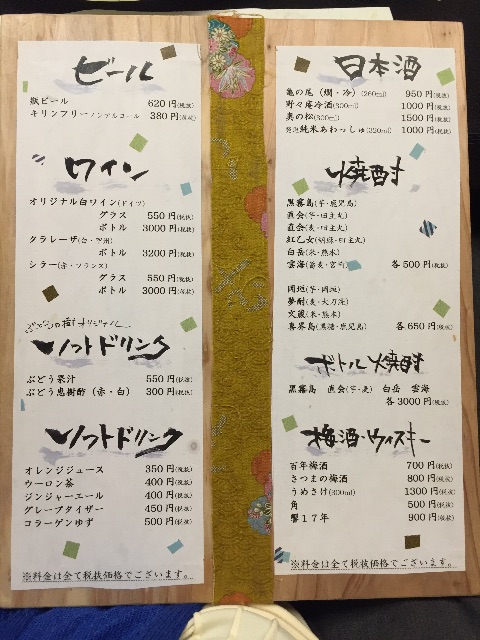 ビール
瓶ビール 620円(税抜)
キリンフリーノンアルコール 380円(税抜)
ワイン
オリジナル白ワイン(ドイツ)
グラス 550円(税抜)
ボトル 3000円(税抜)
タラレーザ(白・甲州)
ボトル 3200円(税抜)
シラー(赤・フランス)
グラス 550円(税抜)
ボトル 3000円(税抜)
ぶどうの樹オリジナル
ソフトドリンク
ぶどう果汁 550円(税抜)
ぶどう恵樹酢(赤・白) 300円(税抜)
ソフトドリンク
オレンジジュース 350円(税抜)
ウーロン茶 400円(税抜)
ジンジャーエール 400円(税抜)
グレープタイザー 450円(税抜)
コラーゲンゆず 500円(税抜)
※料金は全て税抜価格でございます。
日本酒
亀の尾(燗・冷)(260ml) 950円(税抜)
野々庵冷酒(300ml) 1000円(税抜)
奥の松(300ml) 1500円(税抜)
発泡純米あわっしゅ(320ml) 1000円(税抜)
焼酎
黒霧島(芋・鹿児島)
直会(芋・田主丸)
直会(麦・田主丸)
紅乙女(胡麻・田主丸)
白岳(米・熊本)
雲海(蕎麦・宮崎) 各500円(税抜)
岡垣(芋・岡垣)
夢酎(麦・大刀洗)
文蔵(米・熊本)
喜界島(黒糖・鹿児島) 各650円(税抜)
ボトル焼酎
黒霧島 直会(芋・麦) 白岳 雲海
各3000円(税抜)
梅酒・ウィスキー
百年梅酒 700円(税抜)
さつまの梅酒 800円(税抜)
うめさけ(300ml) 1300円(税抜)
角 500円(税抜)
響17年 900円(税抜)
※料金は全て税抜価格でございます。